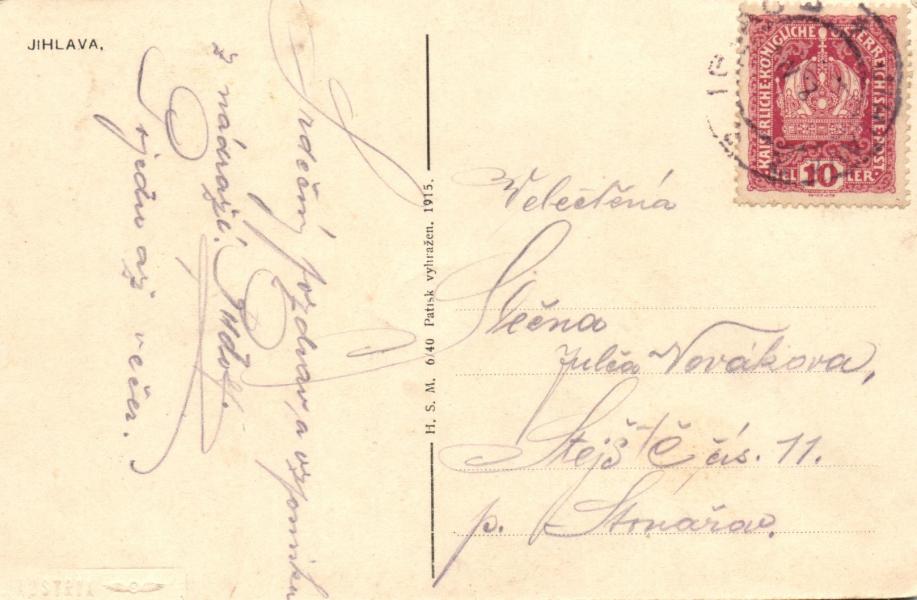 JIHLAVA,
Srdečný pozdrav a vzpomínku
z nádraží. Rudolf.
Pojedu až večer.
H. S. M. 6/40 Patisk vyhražen. 1915.
KAISERLICHE KÖNIGLICHE ÖSTERREICHISCHE POST
HEL 10 LER
Velectěná
Slečna
Julča Nováková,
Stejš/č čís. 11.
p. Stonařov,